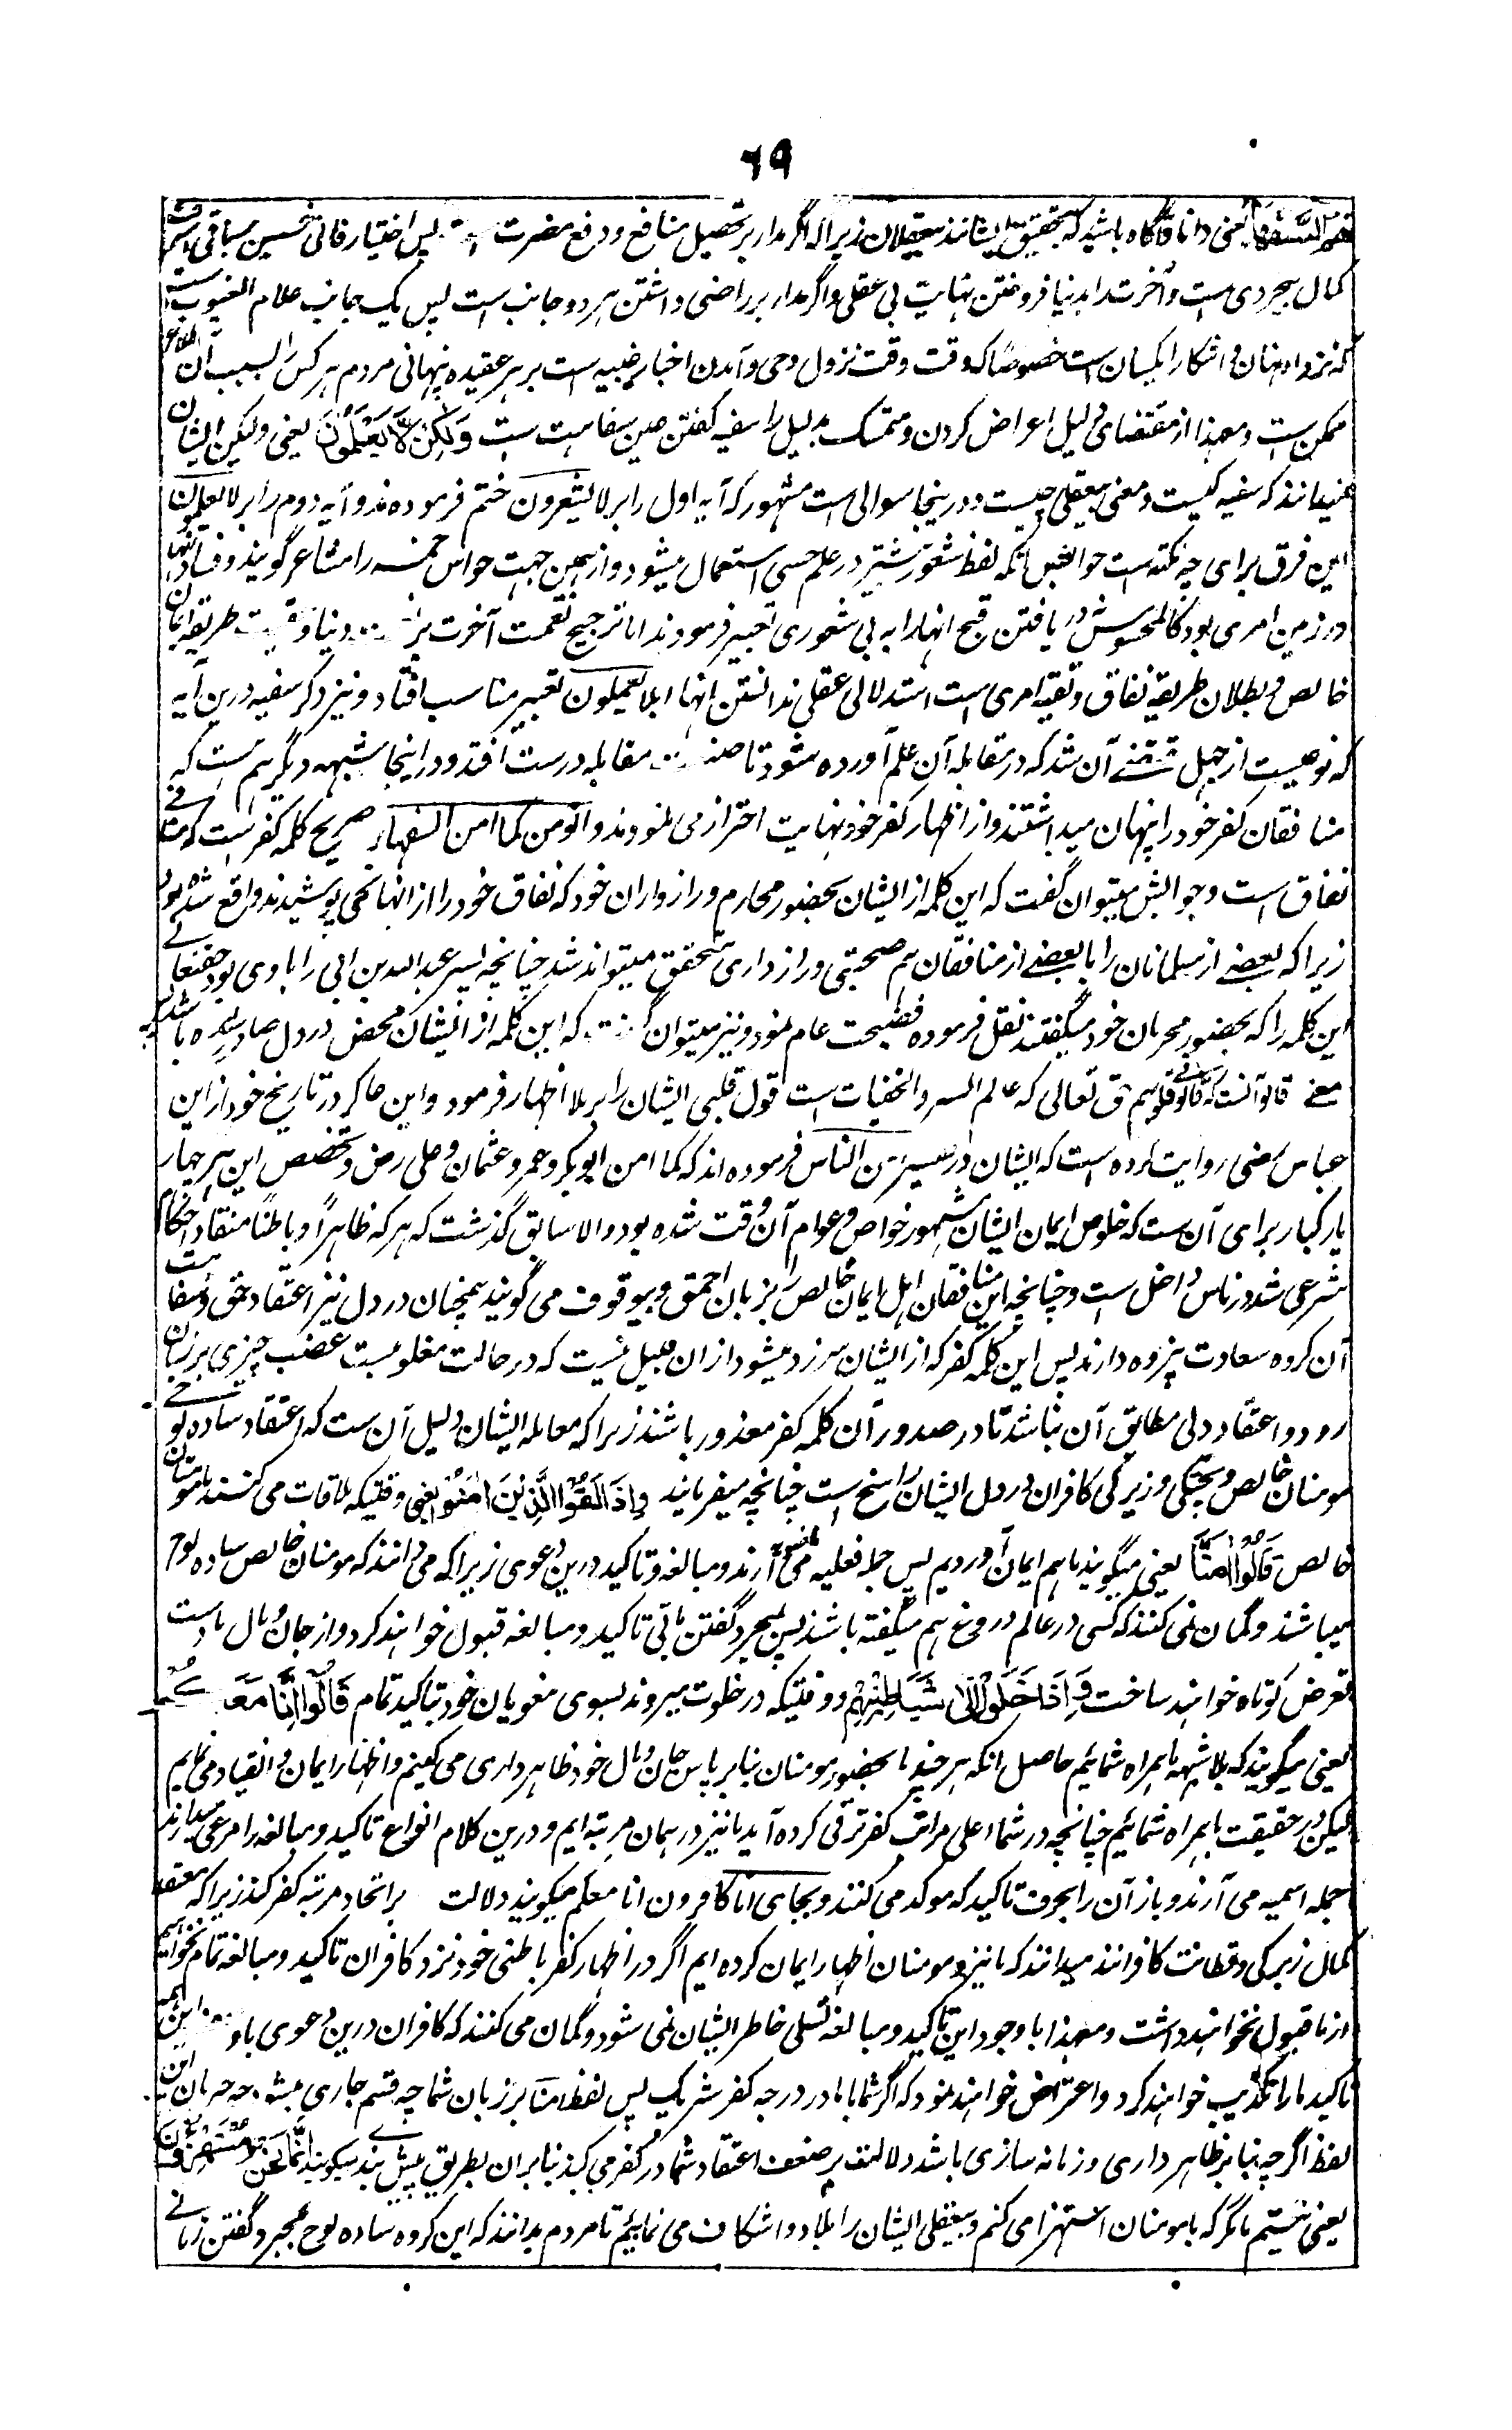 ۶۹
هُمُ السُّفَهَاءُ یعنی دانا و آگاه باشید که بتحقیق ایشانند بیعقلان زیرا که اگر مدار بر تحصیل منافع و دفع مضرت است پس اختیار فانی خسیس بر باقی
کمال بیخردی ست و آخرت را بدنیا فروختن نهایت بی عقلی و اگر مدار بر راضی داشتن هر دو جانب است پس یک جانب علام الغیوب است
که نزد او پنهان و آشکارا یکسان است خصوصًا که وقت وقت نزول وحی و آمدن اخبار غیبیه است بر هر عقیده پنهانی مردم هر کس را بسبب آن اطلاع
ممکن ست و معهذا از مقتضای دلیل اعراض کردن و متمسک بدلیل را سفیه گفتن عین سفاهت ست وَلٰكِنْ لَّا يَعْلَمُوْنَ یعنی ولیکن ایشان
نمیدانند که سفیه کیست و معنی بیعقلی چیست و درینجا سوالی است مشهور که آیه اول را بر لا یشعرون ختم فرموده‌اند و آیه دوم را بر لا یعلمون
این فرق برای چه نکته است جوابش آنکه لفظ شعور بیشتر در علم حسی استعمال میشود و از همین جهت حواس خمسه را مشاعر گویند و فساد اینها
در زمین امری بود کالمحسوس در یافتن قبح آنها را به بی شعوری تعبیر فرمودند اما ترجیح نعمت آخرت بر دنیا و طریقه ایمان
خالص و بطلان طریقه نفاق و تقیه امری است استدلالی عقلی ندانستن آنها را بلا یعلمون تعبیر مناسب افتاد و نیز ذکر سفیه درین آیه
که نوعیست از جهل مقتضی آن شد که در مقابله آن علم آورده شود تا مقابله درست افتد و در اینجا شبهه دیگر هم است که
منافقان کفر خود را پنهان میداشتند و از اظهار کفر خود نهایت احتراز می نمودند و انومن کما امن السفهاء صریح کلمه کفر است که منافی
نفاق است و جوابش میتوان گفت که این کلمه از ایشان بحضور محارم و رازداران خود که نفاق خود را از آنها نمی پوشیدند واقع شده بود
زیرا که بعضے از مسلمانان را با بعضے از منافقان هم صحبتی و رازداری متحقق میتواند شد چنانچه پسر عبدالله بن ابی را با وی بود حقتعالے
این کلمه را که بحضور محرمان خود میگفتند نقل فرموده فضیحت عام نمود و نیز میتوان گفت که این کلمه از ایشان محض در دل صادر شده باشد
معنے قالوا آنست که قالوا فی قلوبهم حق تعالی که عالم السر والخفیات است قول قلبی ایشان را بر ملا اظهار فرمود و ابن عساکر در تاریخ خود از ابن
عباس رضی روایت کرده است که ایشان در تفسیر امن الناس فرموده‌اند که کما امن ابوبکر و عمر و عثمان و علی رض و تخصیص این هر چهار
یار کبار برای آن ست که خلوص ایمان ایشان مشهور خواص و عوام آن وقت شده بود و الا سابق گذشت که هر که ظاهرًا و باطنًا منقاد احکام
شرعی شد در ناس داخل ست و چنانچه این منافقان اهل ایمان خالص را بزبان احمق و بیوقوف می گویند همچنان در دل نیز اعتقاد حمق و سفاهت
آن گروه سعادت پژوه دارند پس این کلمه کفر که از ایشان سرزد میشود از ان قبیل نیست که در حالت مغلوبیت غضب چیزی بر زبان
رود و اعتقاد دلی مطابق آن نباشد تا در صدور آن کلمه کفر معذور باشند زیرا که معامله ایشان دلیل آن ست که اعتقاد ساده لوحی
مومنان خالص و پختگی و زیرکی کافران در دل ایشان راسخ است چنانچه میفرمایند وَاِذَا لَقُوا الَّذِيْنَ اٰمَنُوْا یعنی وقتیکه ملاقات می کنند با مومنان
خالص قَالُوْا اٰمَنَّا یعنی میگویند ما هم ایمان آوردیم پس جمله فعلیه می آرند و مبالغه و تاکید درین دعوی زیرا که می دانند که مومنان خالص ساده لوح
میباشند و گمان نمی کنند که کسی در عالم دروغ هم میگفته باشد پس بمجرد گفتن ما بی تاکید و مبالغه قبول خواهند کرد و از جان و مال ما دست
تعرض کوتاه خواهند ساخت وَاِذَا خَلَوْا اِلٰى شَيَاطِيْنِهِمْ و وقتیکه در خلوت میروند بسوی مغویان خود بتاکید تمام قَالُوْا اِنَّا مَعَكُمْ
یعنی میگویند که بلا شبهه ما همراه شمائیم حاصل آنکه هر چند ما بحضور مومنان بنا بر پاس جان و مال خود ظاهر داری می کنیم و اظهار ایمان و انقیاد می نمائیم
لیکن در حقیقت ما همراه شمائیم چنانچه در شما اعلی مراتب کفر ترقی کرده آید ما نیز در همان مرتبه ایم و درین کلام انواع تاکید و مبالغه را مرعی میدارند
جمله اسمیه می آرند و باز آن را بحرف تاکید که موکد می کنند و بجای انا کافرون انا معکم میگویند دلالت بر اتحاد مرتبه کفر کند زیرا که معتقد
کمال زیرکی و فطانت کافرانند میدانند که ما نیز و مومنان اظهار ایمان کرده ایم اگر در اظهار کفر باطنی خود نزد کافران تاکید و مبالغه تمام نخواهیم
از ما قبول نخواهند داشت و معهذا با وجود این تاکید و مبالغه تسلی خاطر ایشان نمی شود و گمان می کنند که کافران درین دعوی با این
تاکید ما را تکذیب خواهند کرد و اعتراض خواهند نمود که اگر شما با ما در درجه کفر شریک پس لفظ امنا بر زبان شما چه قسم جاری میشود این
لفظ اگر چه بنا بر ظاهر داری و زمانه سازی باشد دلالت بر ضعف اعتقاد شما در کفر می کند بنا بران بطریق پیش بند میگویند اِنَّمَا نَحْنُ مُسْتَهْزِءُوْنَ
یعنی نیستیم ما مگر که با مومنان استهزا می کنم و بیعقلی ایشان را بملا و اشکاف می نمائیم تا مردم بدانند که این گروه ساده لوح بمجرد گفتن زبانے